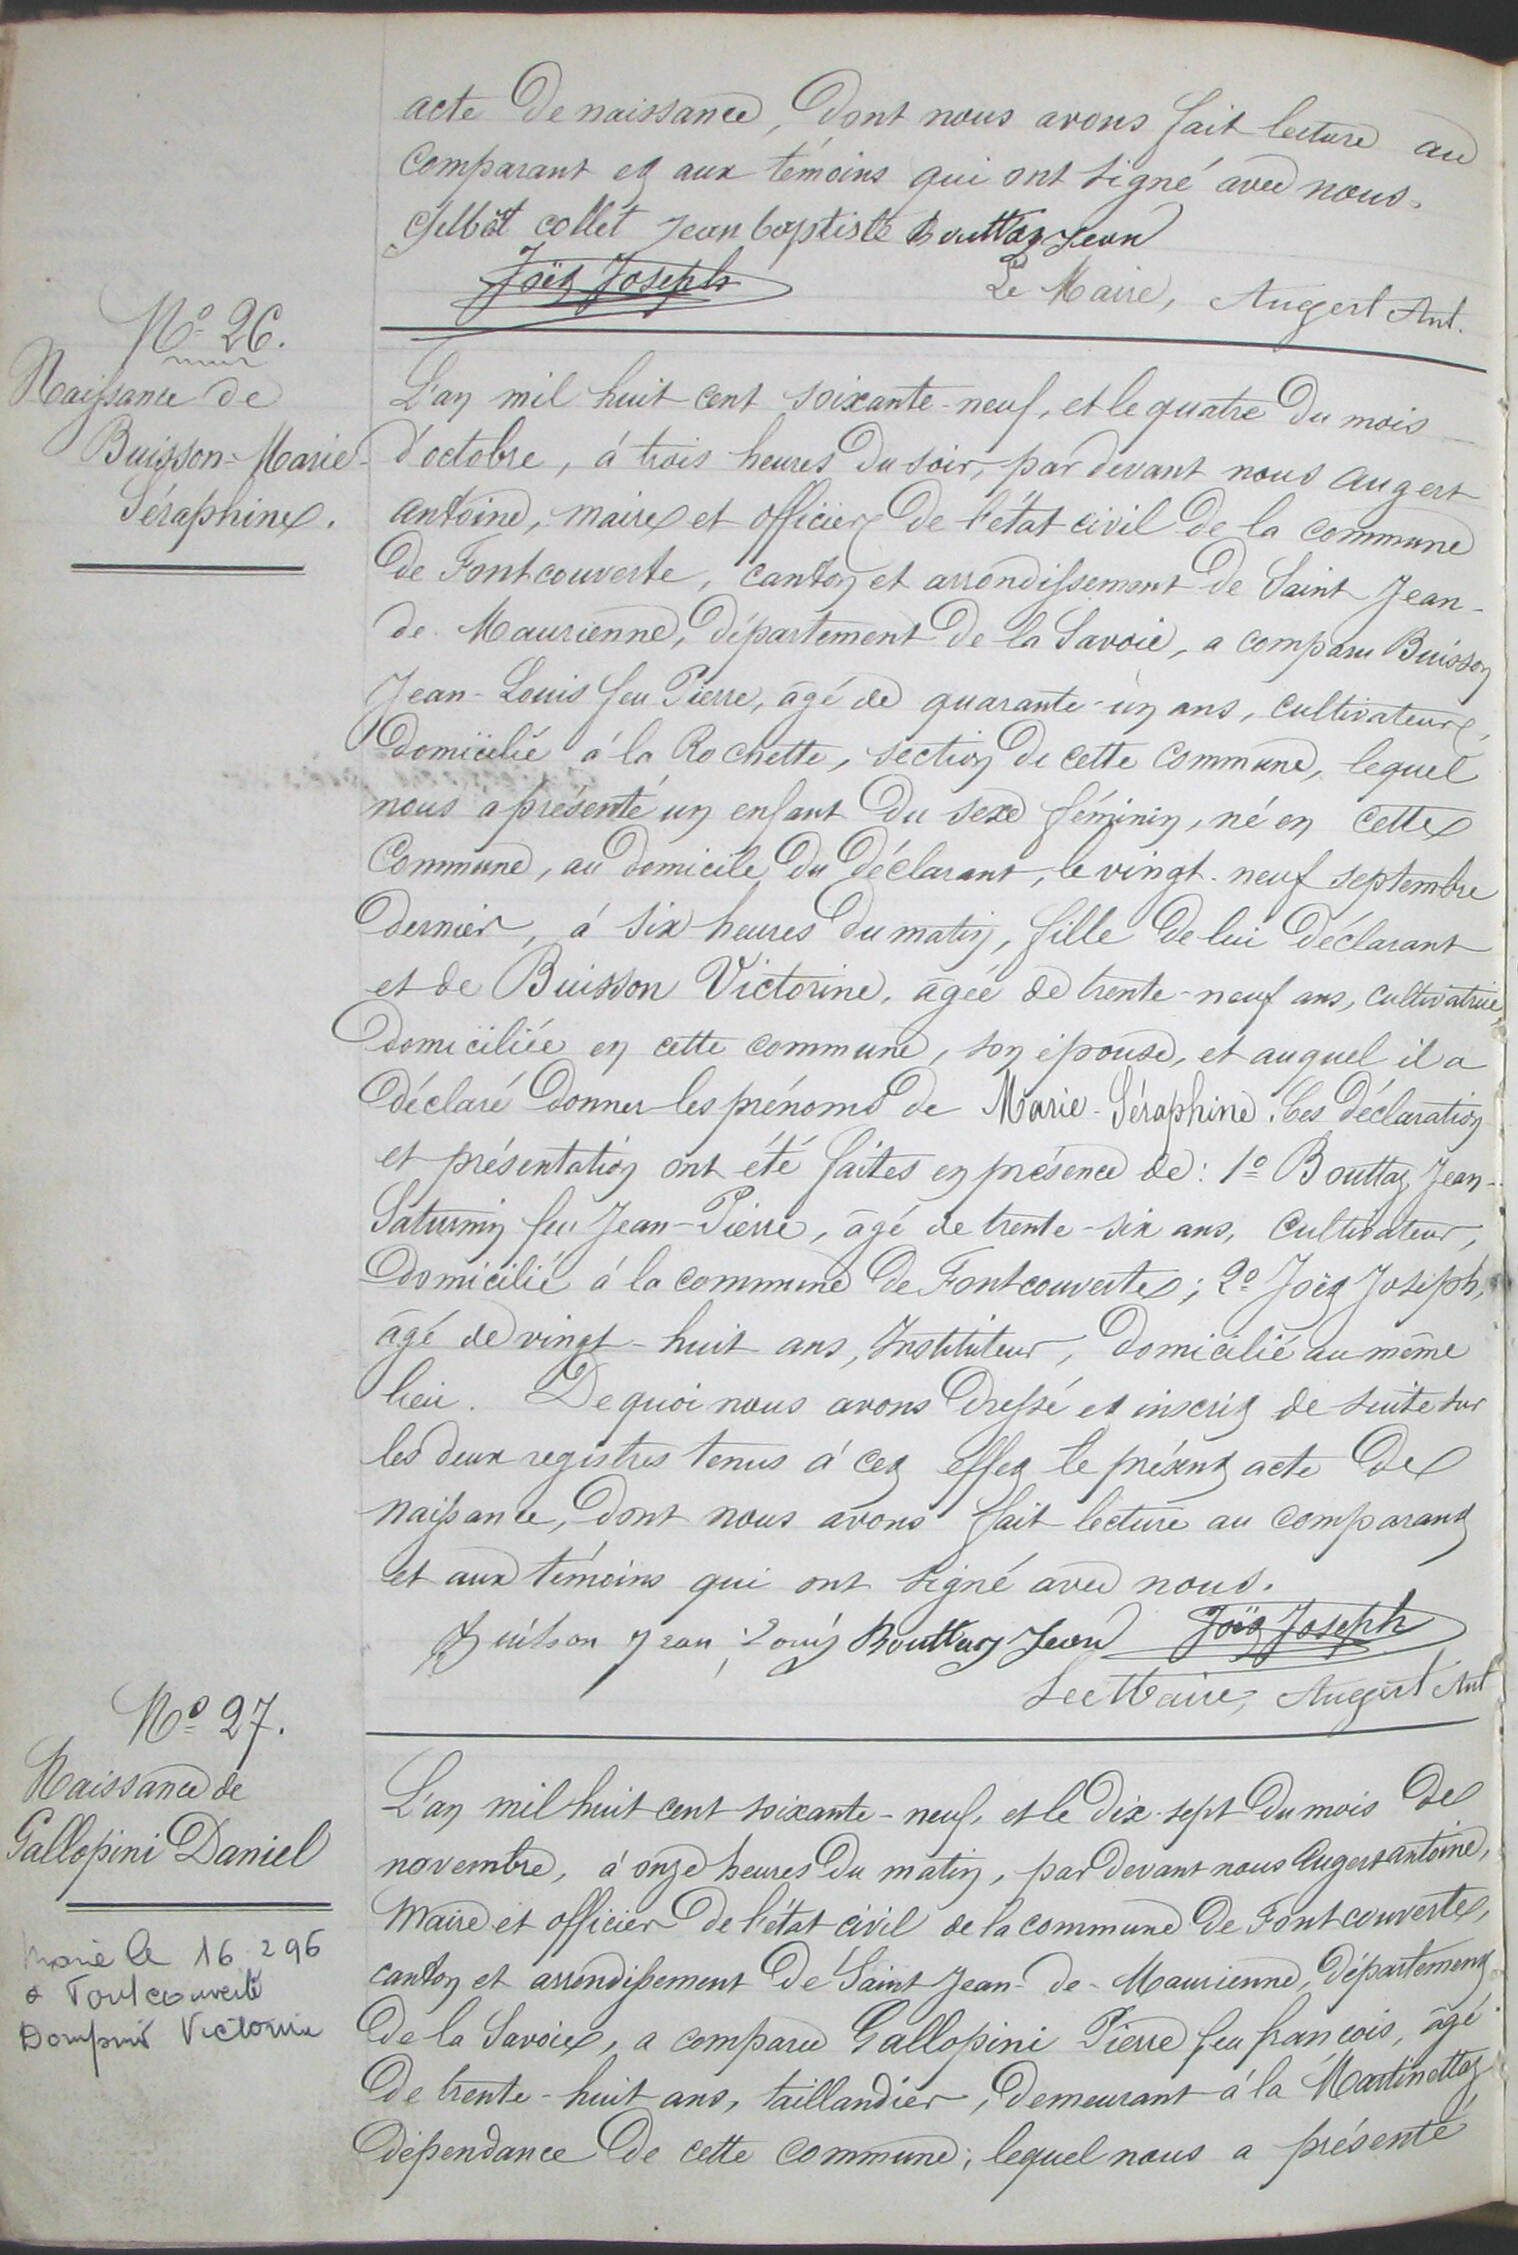 acte de naissance, dont nous avons fait lecture au
comparant et aux témoins qui ont signé avec nous.
collet jean baptiste Bouttaz Jean
Joëz Joseph
Le Maire, Augert Ant.
N° 26.
Naissance de
Buisson-Marie-
Séraphine.
L'an mil huit cent soixante-neuf, et le quatre du mois
d'octobre, à trois heures du soir, par devant nous augert
antoine, maire et officier de l'état civil de la commune
de Fontcouverte, canton et arrondissement de Saint Jean-
de Maurienne, département de la Savoie, a comparu Buisson
Jean-Louis feu Pierre, âgé de quarante-un ans, cultivateur,
domicilié à la Rochette, section de cette commune, lequel
nous a présenté un enfant du sexe féminin, né en cette
Commune, au domicile du déclarant, le vingt-neuf septembre
dernier, à six heures du matin, fille de lui déclarant
et de Buisson Victorine, âgée de trente-neuf ans, cultivatrice,
domiciliée en cette commune, son épouse, et auquel il a
déclaré donner les prénoms de Marie-Séraphine. Ces déclaration
et présentation ont été faites en présence de: 1° Bouttaz Jean-
Saturnin feu Jean-Pierre, âgé de trente-six ans, cultivateur,
domicilié à la commune de Fontcouverte; 2° Joëz Joseph,
âgé de vingt-huit ans, Instituteur, domicilié au même
lieu. De quoi nous avons dressé et inscrit de suite sur
les deux registres tenus à cet effet le présent acte de
naissance, dont nous avons fait lecture au comparant
et aux témoins qui ont signé avec nous.
Buisson jean Louis Bouttaz Jean Joëz Joseph
Le Maire, Augert Ant
N° 27.
Naissance de
Gallopini Daniel
Marié le 16 2 96
à Fontcouverte
Victorine
L'an mil huit cent soixante-neuf, et le dix-sept du mois de
novembre, à onze heures du matin, par devant nous Augert antoine,
Maire et officier de l'état civil de la commune de Fontcouverte,
canton et arrondissement de Saint Jean-de-Maurienne, département
de la Savoie, a comparu Gallopini Pierre feu françois, âgé
de trente-huit ans, taillandier, demeurant à la Martinettaz
dépendance de cette commune; lequel nous a présenté